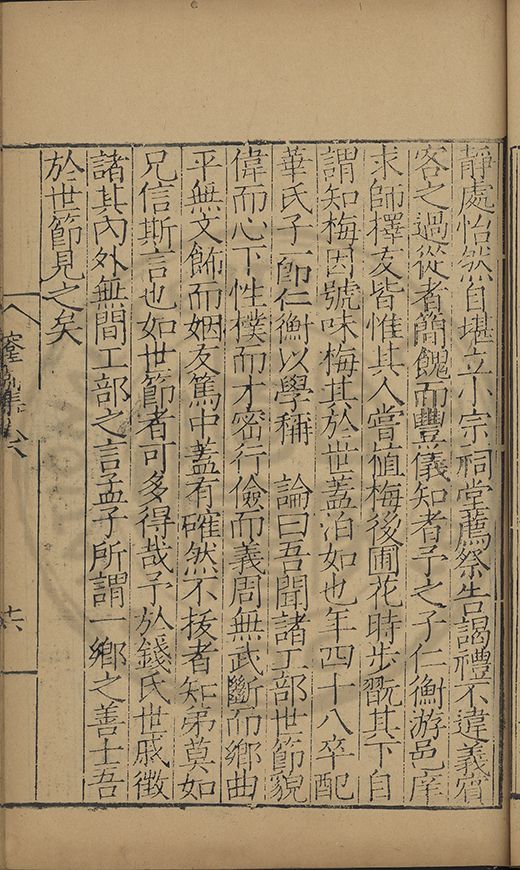 靜處怡然自堪立小宗祠堂薦祭告謁禮不違義賓
客之過從者簡餽而豐儀知者予之子仁衡游邑庠
求師擇友皆惟其人嘗值梅後圃花時步翫其下自
謂知梅因號味梅其於世蓋泊如也年四十八卒配
華氏子一即仁衡以學稱　論曰吾聞諸工部世節貌
偉而心下性樸而才密行儉而義周無武斷而鄉曲
平無文飾而姻友篤中蓋有確然不拔者知弟莫如
兄信斯言也如世節者可多得哉予於錢氏世戚徵
諸其內外無間工部之言孟子所謂一鄉之善士吾
於世節見之矣
集
十六